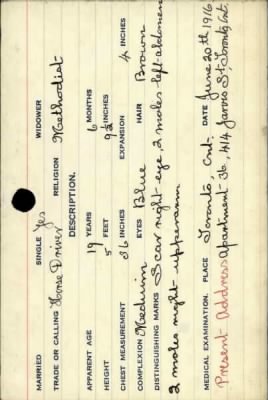 MARRIED SINGLE Yes WIDOWER
TRADE OR CALLING Horse Driver RELIGION Methodist
DESCRIPTION.
APPARENT AGE 19 YEARS 6 MONTHS
HEIGHT 5 FEET 9½ INCHES
CHEST MEASUREMENT 36 INCHES EXPANSION 4 INCHES
COMPLEXION Medium EYES Blue HAIR Brown
DISTINGUISHING MARKS Scar right eye, 2 moles left abdomen
2 moles right upperarm
MEDICAL EXAMINATION. PLACE Toronto, Ont. DATE June 20th 1916
Present Address: Apartment 36, 414 Jarvis St, Toronto Ont.